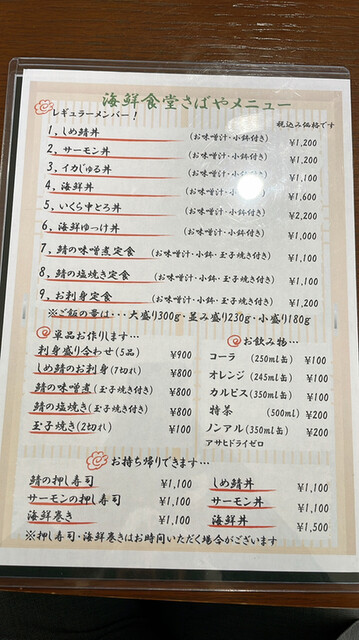 海鮮食堂さばやメニュー
レギュラーメンバー!
税込み価格です
1, しめ鯖丼 (お味噌汁・小鉢付き) ¥1,200
2, サーモン丼 (お味噌汁・小鉢付き) ¥1,200
3, イカじゅる丼 (お味噌汁・小鉢付き) ¥1,100
4, 海鮮丼 (お味噌汁・小鉢付き) ¥1,600
5, いくら中とろ丼 (お味噌汁・小鉢付き) ¥2,200
6, 海鮮ゆっけ丼 (お味噌汁・小鉢付き) ¥1,000
7, 鯖の味噌煮定食 (お味噌汁・小鉢・玉子焼き付き) ¥1,100
8, 鯖の塩焼き定食 (お味噌汁・小鉢・玉子焼き付き) ¥1,100
9, お刺身定食 (お味噌汁・小鉢・玉子焼き付き) ¥1,200
※ご飯の量は・・・大盛り300g・並み盛り230g・小盛り180g
単品お作りします…
利身盛り合わせ(5品) ¥900
しめ鯖のお刺身(7切れ) ¥800
鯖の味噌煮(玉子焼き付き) ¥800
鯖の塩焼き(玉子焼き付き) ¥800
玉子焼き(2切れ) ¥100
お飲み物…
コーラ (250ml缶) ¥100
オレンジ (245ml缶) ¥100
カルピス(350ml缶) ¥100
特茶 (500ml) ¥200
ノンアル(350ml缶) ¥200
アサヒドライゼロ
お持ち帰りできます…
鯖の押し寿司 ¥1,100
サーモンの押し寿司 ¥1,100
海鮮巻き ¥1,100
しめ鯖丼 ¥1,100
サーモン丼 ¥1,100
海鮮丼 ¥1,500
※押し寿司・海鮮巻きはお時間いただく場合がございます